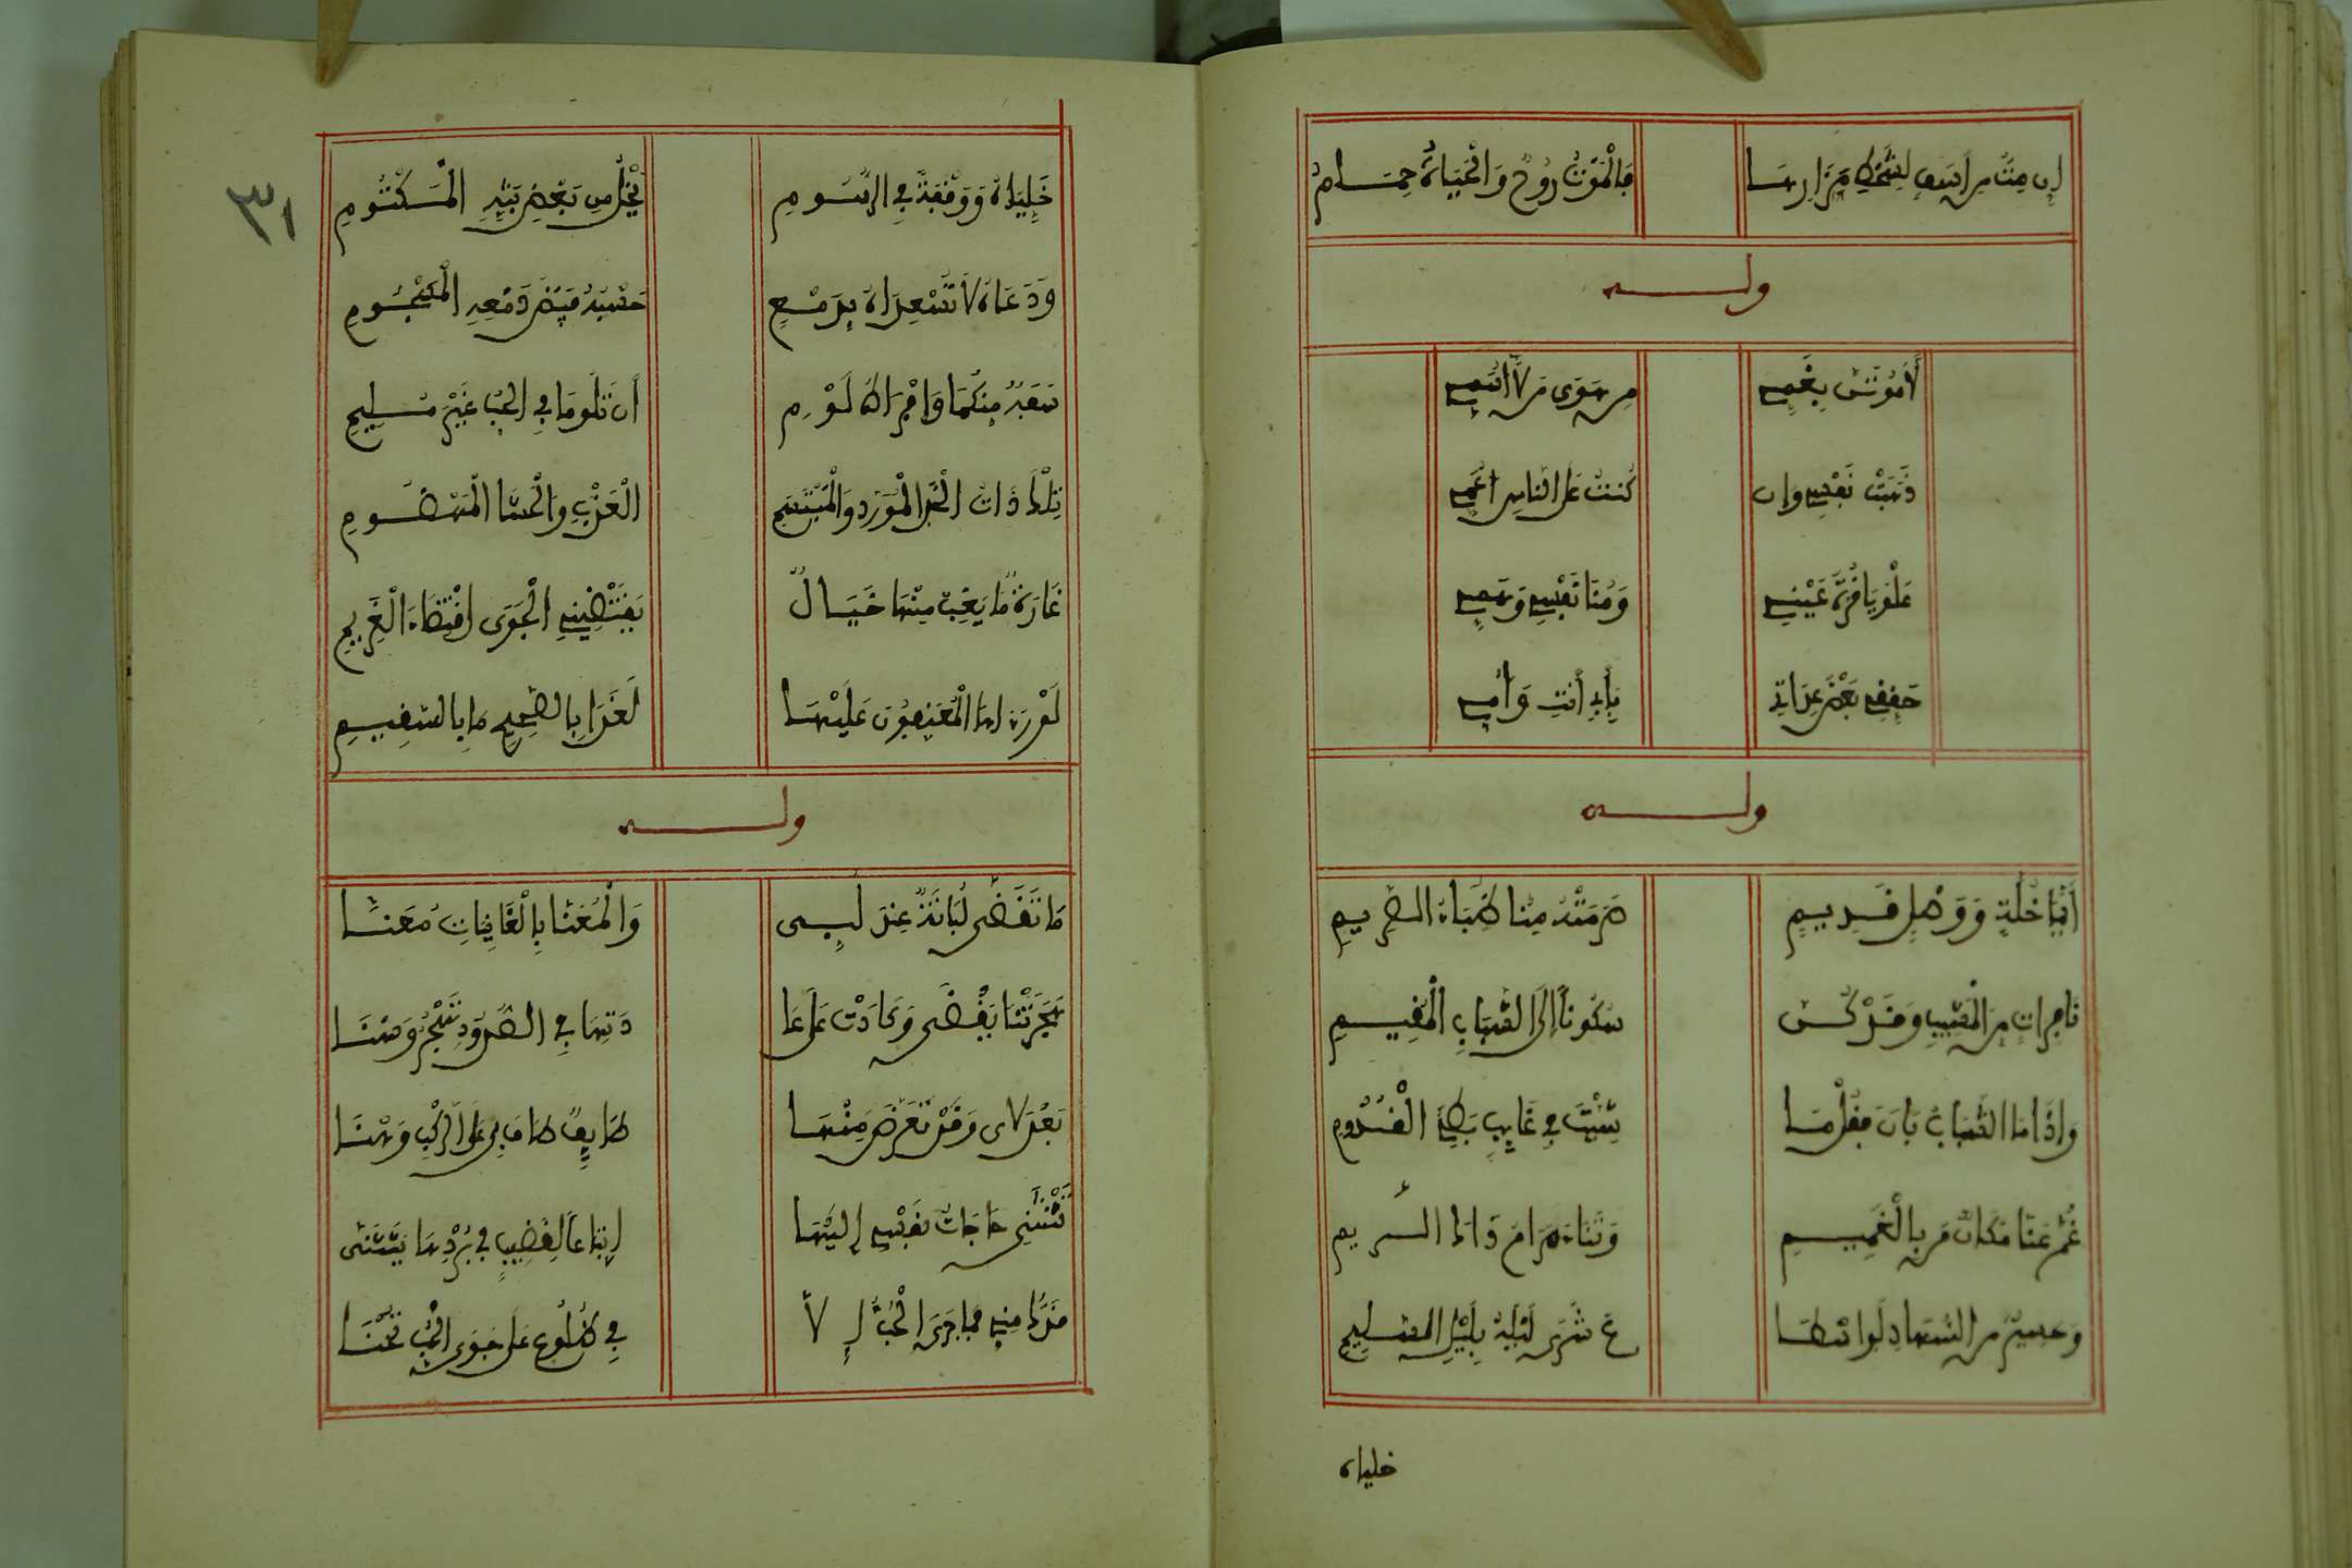 إن مت من أسف لشحط مزارها فالموت روح والحياة حمام
وله
لأموتن بغمي من هوى من لا أسمي
ذهبت نفسي وإن كنت على الناس أعمي
علو يا قرة عيني ومنا نفسي وهمي
خففي بعض عذابي بأبي أنت وأمي
وله
أيما خلة ووصل قديم صرمته منا ظباء الصريم
نافرات من المشيب وقد كن سكونا إلى الشباب المقيم
وإذا ما الشباب بان فقل ما شئت في غايب بطيء القدوم
غم عنا مكان من بالغميم وتناء مرام ذاك الريم
وحسير من السهاد لوا سطا ع شرى ليله بليل السليم
خلياه
خلياه ووقفة في الرسوم يخل من بعض بثه المكتوم
ودعاه لا تسعداه بدمع حسبه فيض دمعه المسجوم
سفه منكما وإفراط لوم أن تلوما في الحب غير مليم
تلك ذات الخد المورد والمبتسم العذب والحشا المهضوم
غادة ما يغب منها خيال يقتضيني الجوى اقتضاء الغريم
لو رءا ما المعنفون عليها لغدا بالصحيح ما بالسقيم
٣١
وله
ما تقضى لبانة عند لبنى والمعنا بالغانيات معنا
هجرتنا يقضى وعادت على عا دتها في الصدود تهجر وسنا
بعد لاي وقد تعرض منها طايف طاف بي على الركب وهنا
تتثنى حاجات نفسي إليها إتباعا لقضيب في بردها يتثنى
قدك مني فما جرى الحب إلا في ضلوع على جوى الحب تحنا